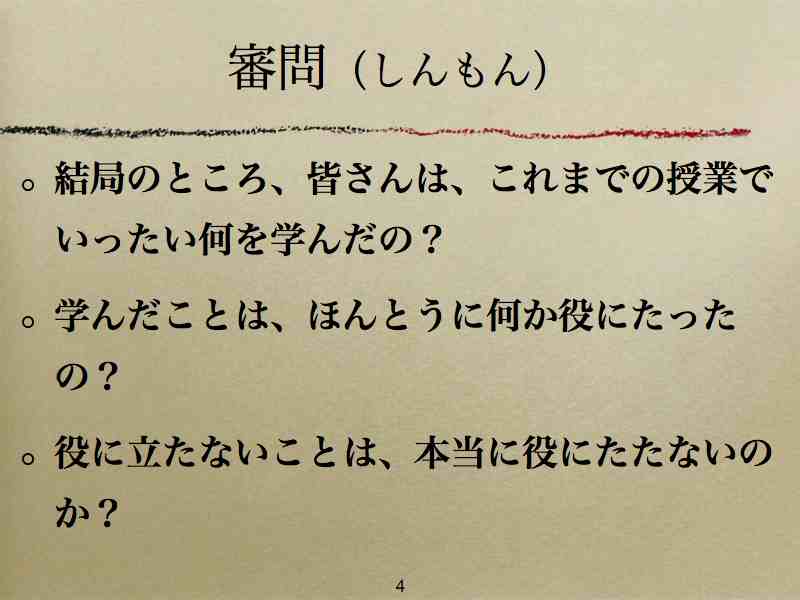 審問（しんもん）
結局のところ、皆さんは、これまでの授業で
いったい何を学んだの？
学んだことは、ほんとうに何か役にたった
の？
役に立たないことは、本当に役にたたないの
か？
4